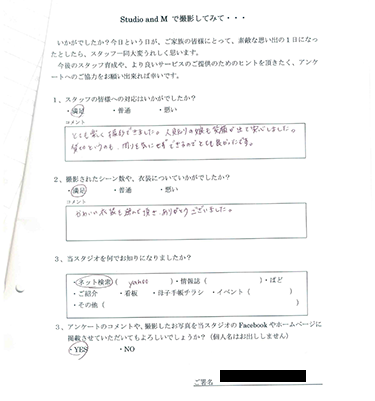 Studio and M で撮影してみて・・・
いかがでしたか？今日という日が、ご家族の皆様にとって、素敵な思い出の1日になっ
たとしたら、スタッフ一同大変うれしく思います。
今後のスタッフ育成や、より良いサービスのご提供のためのヒントを頂きたく、アンケ
ートへのご協力をお願い出来れば幸いです。
1、スタッフの皆様への対応はいかがでしたか？
・満足 ・普通 ・悪い
コメント
とても楽しく撮影できました。人見知りの娘も笑顔が出て安心しました。
貸切というのも、周りを気にせずできるのでとても良かったです。
2、撮影されたシーン数や、衣装についていかがでしたか？
・満足 ・普通 ・悪い
コメント
かわいい衣装を選んで頂き、ありがとうございました。
3、当スタジオを何でお知りになりましたか？
・ネット検索（ yahoo ）・情報誌（ ）・ぱど
・ご紹介 ・看板 ・母子手帳チラシ ・イベント（ ）
・その他（ ）
3、アンケートのコメントや、撮影したお写真を当スタジオの Facebook やホームページに
掲載させていただいてもよろしいでしょうか？（個人名はお出ししません）
・YES ・NO
ご署名